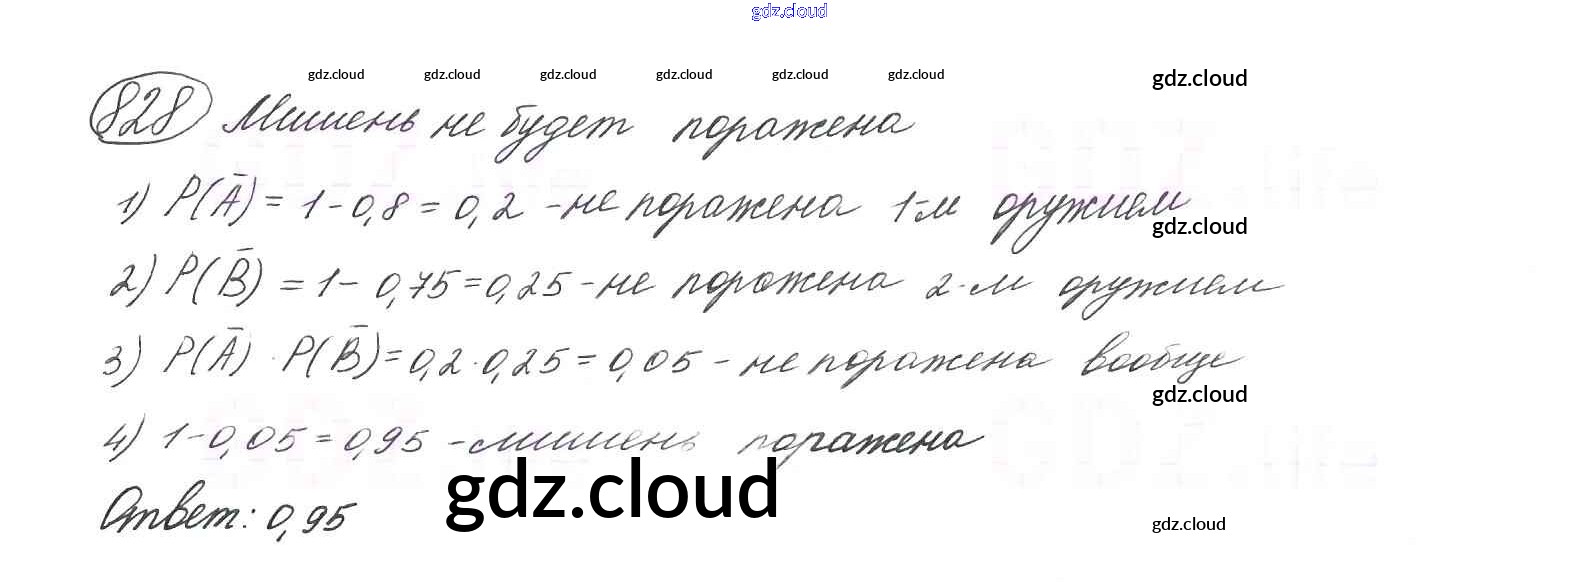 gdz.cloud
gdz.cloud gdz.cloud gdz.cloud gdz.cloud gdz.cloud gdz.cloud gdz.cloud
828 Мишень не будет поражена
1) P(Ā) = 1 - 0,8 = 0,2 - не поражена 1-м оружием
gdz.cloud
2) P(B̄) = 1 - 0,75 = 0,25 - не поражена 2-м оружием
3) P(Ā) · P(B̄) = 0,2 · 0,25 = 0,05 - не поражена вообще
gdz.cloud
4) 1 - 0,05 = 0,95 - мишень поражена
gdz.cloud
Ответ: 0,95
gdz.cloud